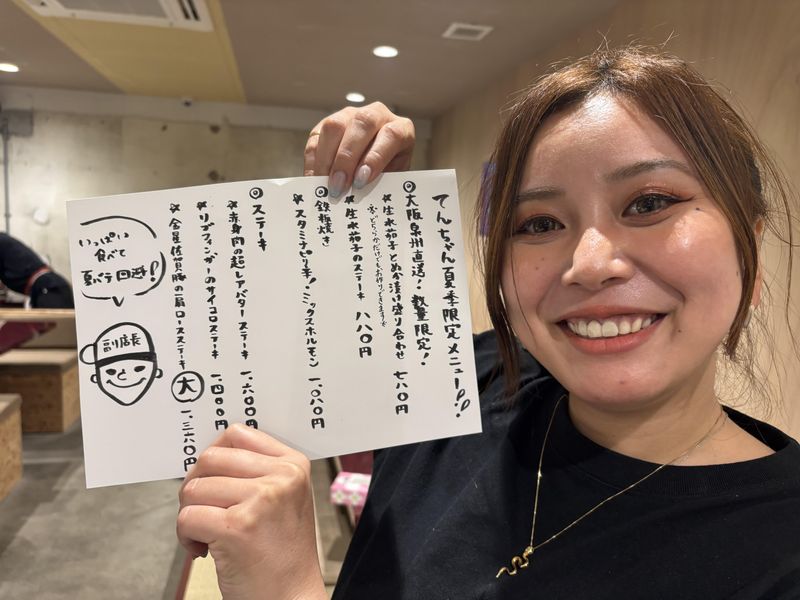 てんちゃん夏季限定メニュー!!
◎大阪泉州直送!数量限定!
*生水茄子とぬか漬け盛り合わせ 七八〇円
*生水茄子のステーキ 八八〇円
◎鉄板焼き
*スタミナピリ辛!ミックスホルモン 一、〇八〇円
◎ステーキ
*赤身肉の超レアバターステーキ 一、六〇〇円
*リブフィンガーのサイコロステーキ 一、四〇〇円
*金星佐賀豚の肩ロースステーキ 大 一、三六〇円
いっぱい
食べて
夏バテ回避!
副店長